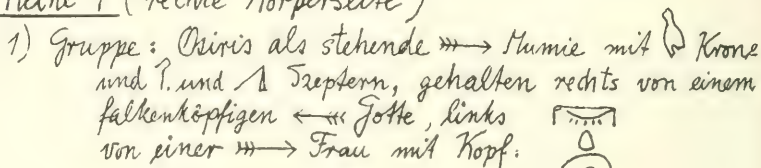 Reihe 1 (rechte Körperseite)
1) Gruppe: Osiris als stehende →→ Mumie mit Krone
und ?. und Szeptern, gehalten rechts von einem
falkenköpfigen ← Gotte, links
von einer → Frau mit Kopf: